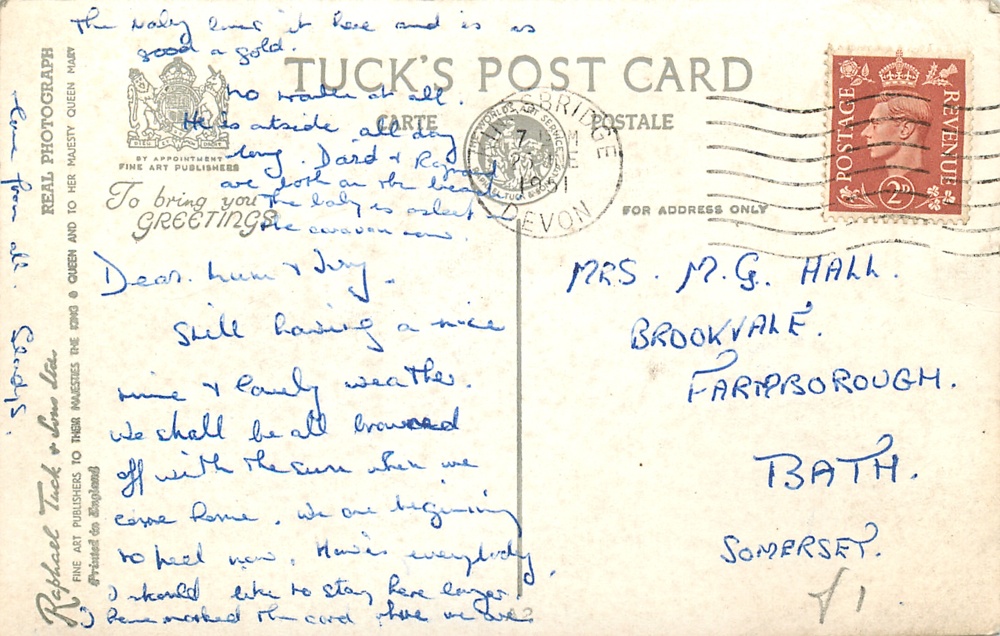 The baby loves it here and is as
good a gold.
no trouble at all.
He is outside all day
long. David & Raymond
are both on the beach
The baby is asleep in
the caravan now.
TUCK'S POST CARD
CARTE POSTALE
BY APPOINTMENT
FINE ART PUBLISHERS
To bring you
GREETINGS
BRIDGE
7
25 JNE
1951
DEVON
POSTAGE REVENUE
2D
FOR ADDRESS ONLY
Dear Mum & Ivy.
Still having a nice
time & lovely weather.
We shall be all browned
off with the sun when we
come home. We are beginning
to peel now. How's everybody
I should like to stay here longer.
I have marked the card where we are
MRS. M. G. HALL.
BROOKVALE.
FARMBOROUGH.
BATH.
SOMERSET.
£1
Love from all. Gladys.
REAL PHOTOGRAPH
Raphael Tuck & Sons Ltd.
FINE ART PUBLISHERS TO THEIR MAJESTIES THE KING & QUEEN AND TO HER MAJESTY QUEEN MARY
Printed in England